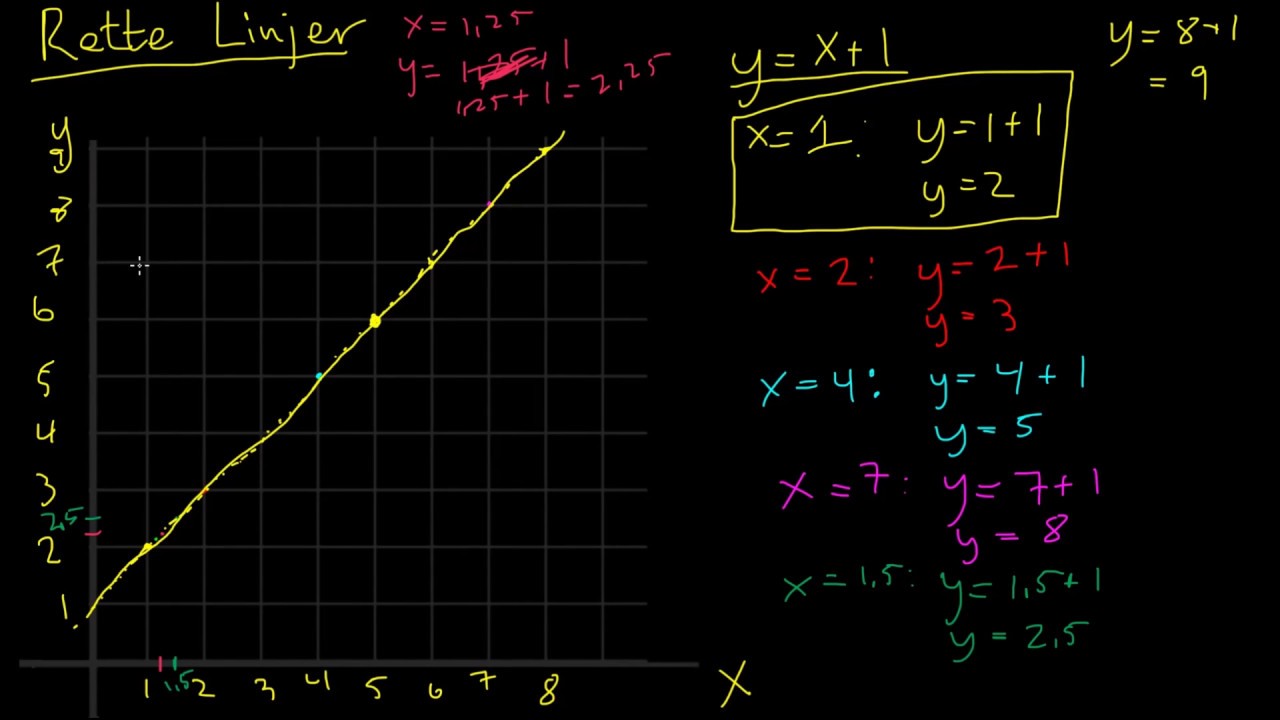 Rette Linjer
x = 1,25
y = 1,25 + 1
1,25 + 1 = 2,25
y = x + 1
x = 1: y = 1 + 1
y = 2
y = 8 + 1
= 9
x = 2: y = 2 + 1
y = 3
x = 4: y = 4 + 1
y = 5
x = 7: y = 7 + 1
y = 8
x = 1,5: y = 1,5 + 1
y = 2,5
y
9
8
7
6
5
4
3
2,5
2
1
1 1,5 2 3 4 5 6 7 8
X